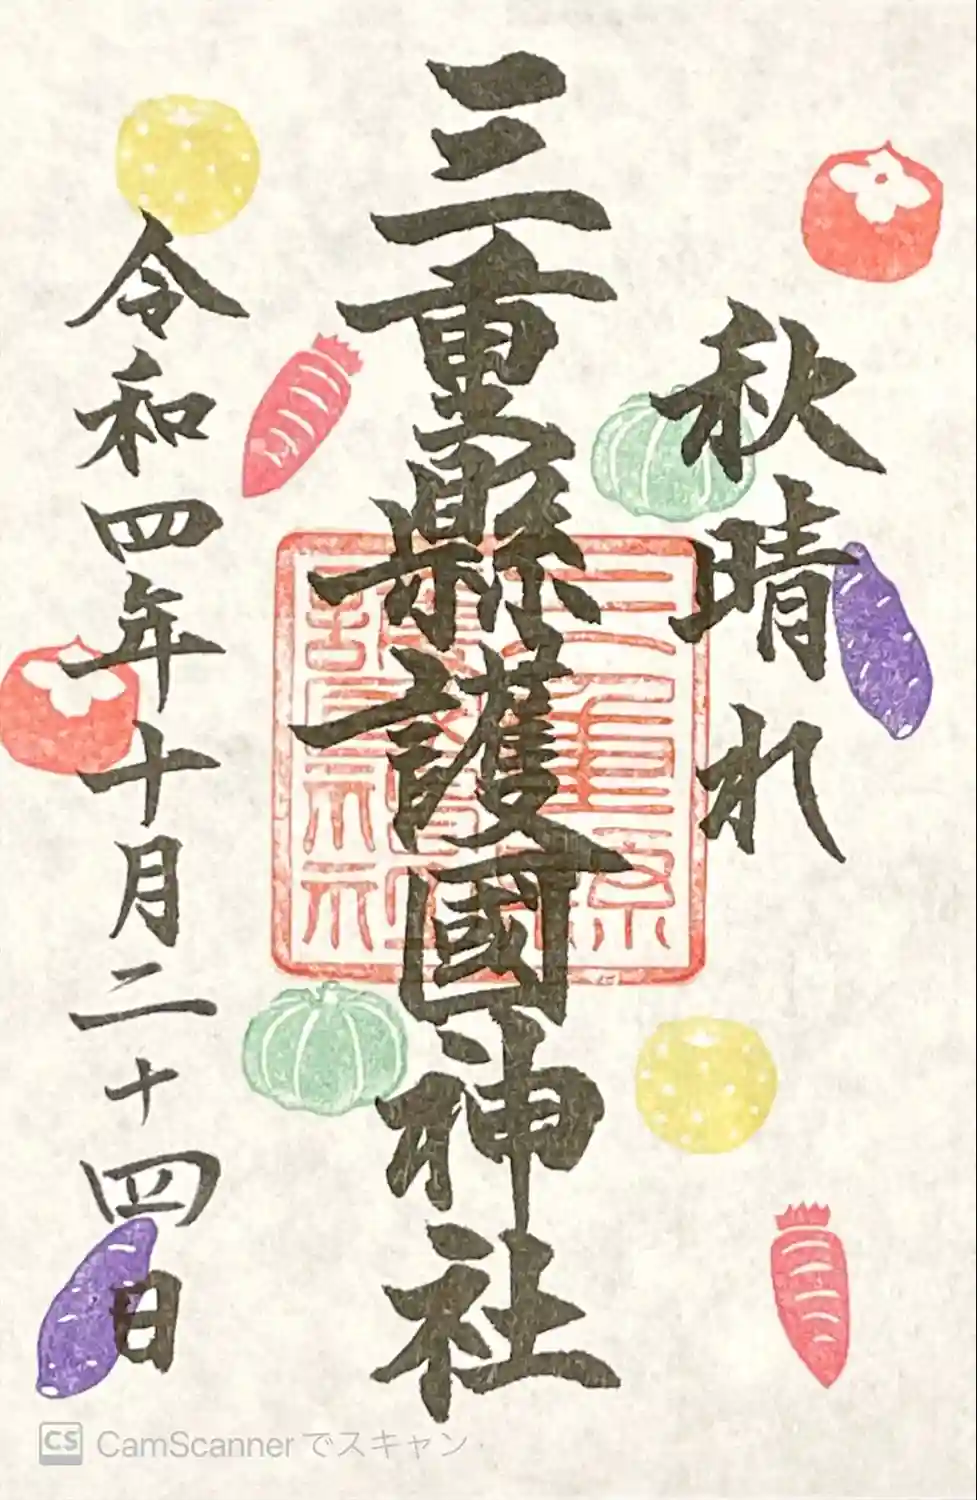 秋晴れ
三重縣護國神社
令和四年十月二十四日
三重縣
護國神社
CS CamScannerでスキャン